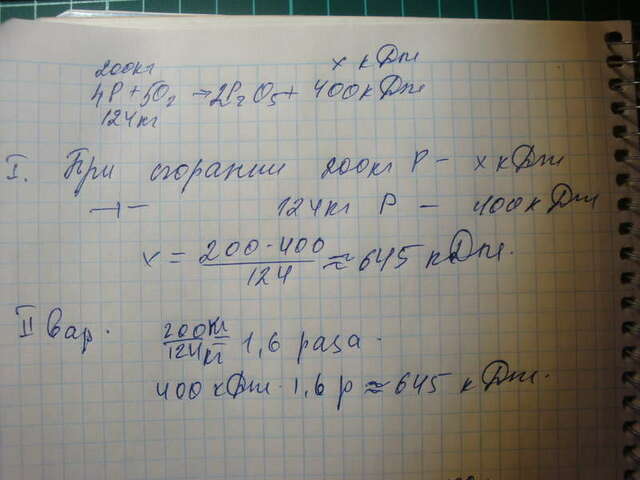 200кг х кДж
4P + 5O₂ → 2P₂O₅ + 400кДж
124кг
I. При сгорании 200кг P – х кДж
–⊣– 124кг P – 400кДж
х = 200·400 / 124 ≈ 645 кДж.
II Вар. 200кг / 124кг = 1,6 раза.
400кДж · 1,6 р ≈ 645 кДж.